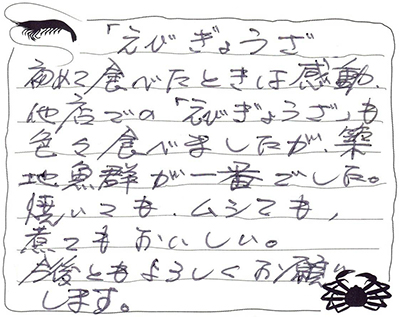 「えびぎょうざ
初めて食べたときは感動.
他店での「えびぎょうざ」も
色々食べましたが、築
地魚群が一番でした。
焼いても、ムシても、
煮てもおいしい。
今後ともよろしくお願い
します。